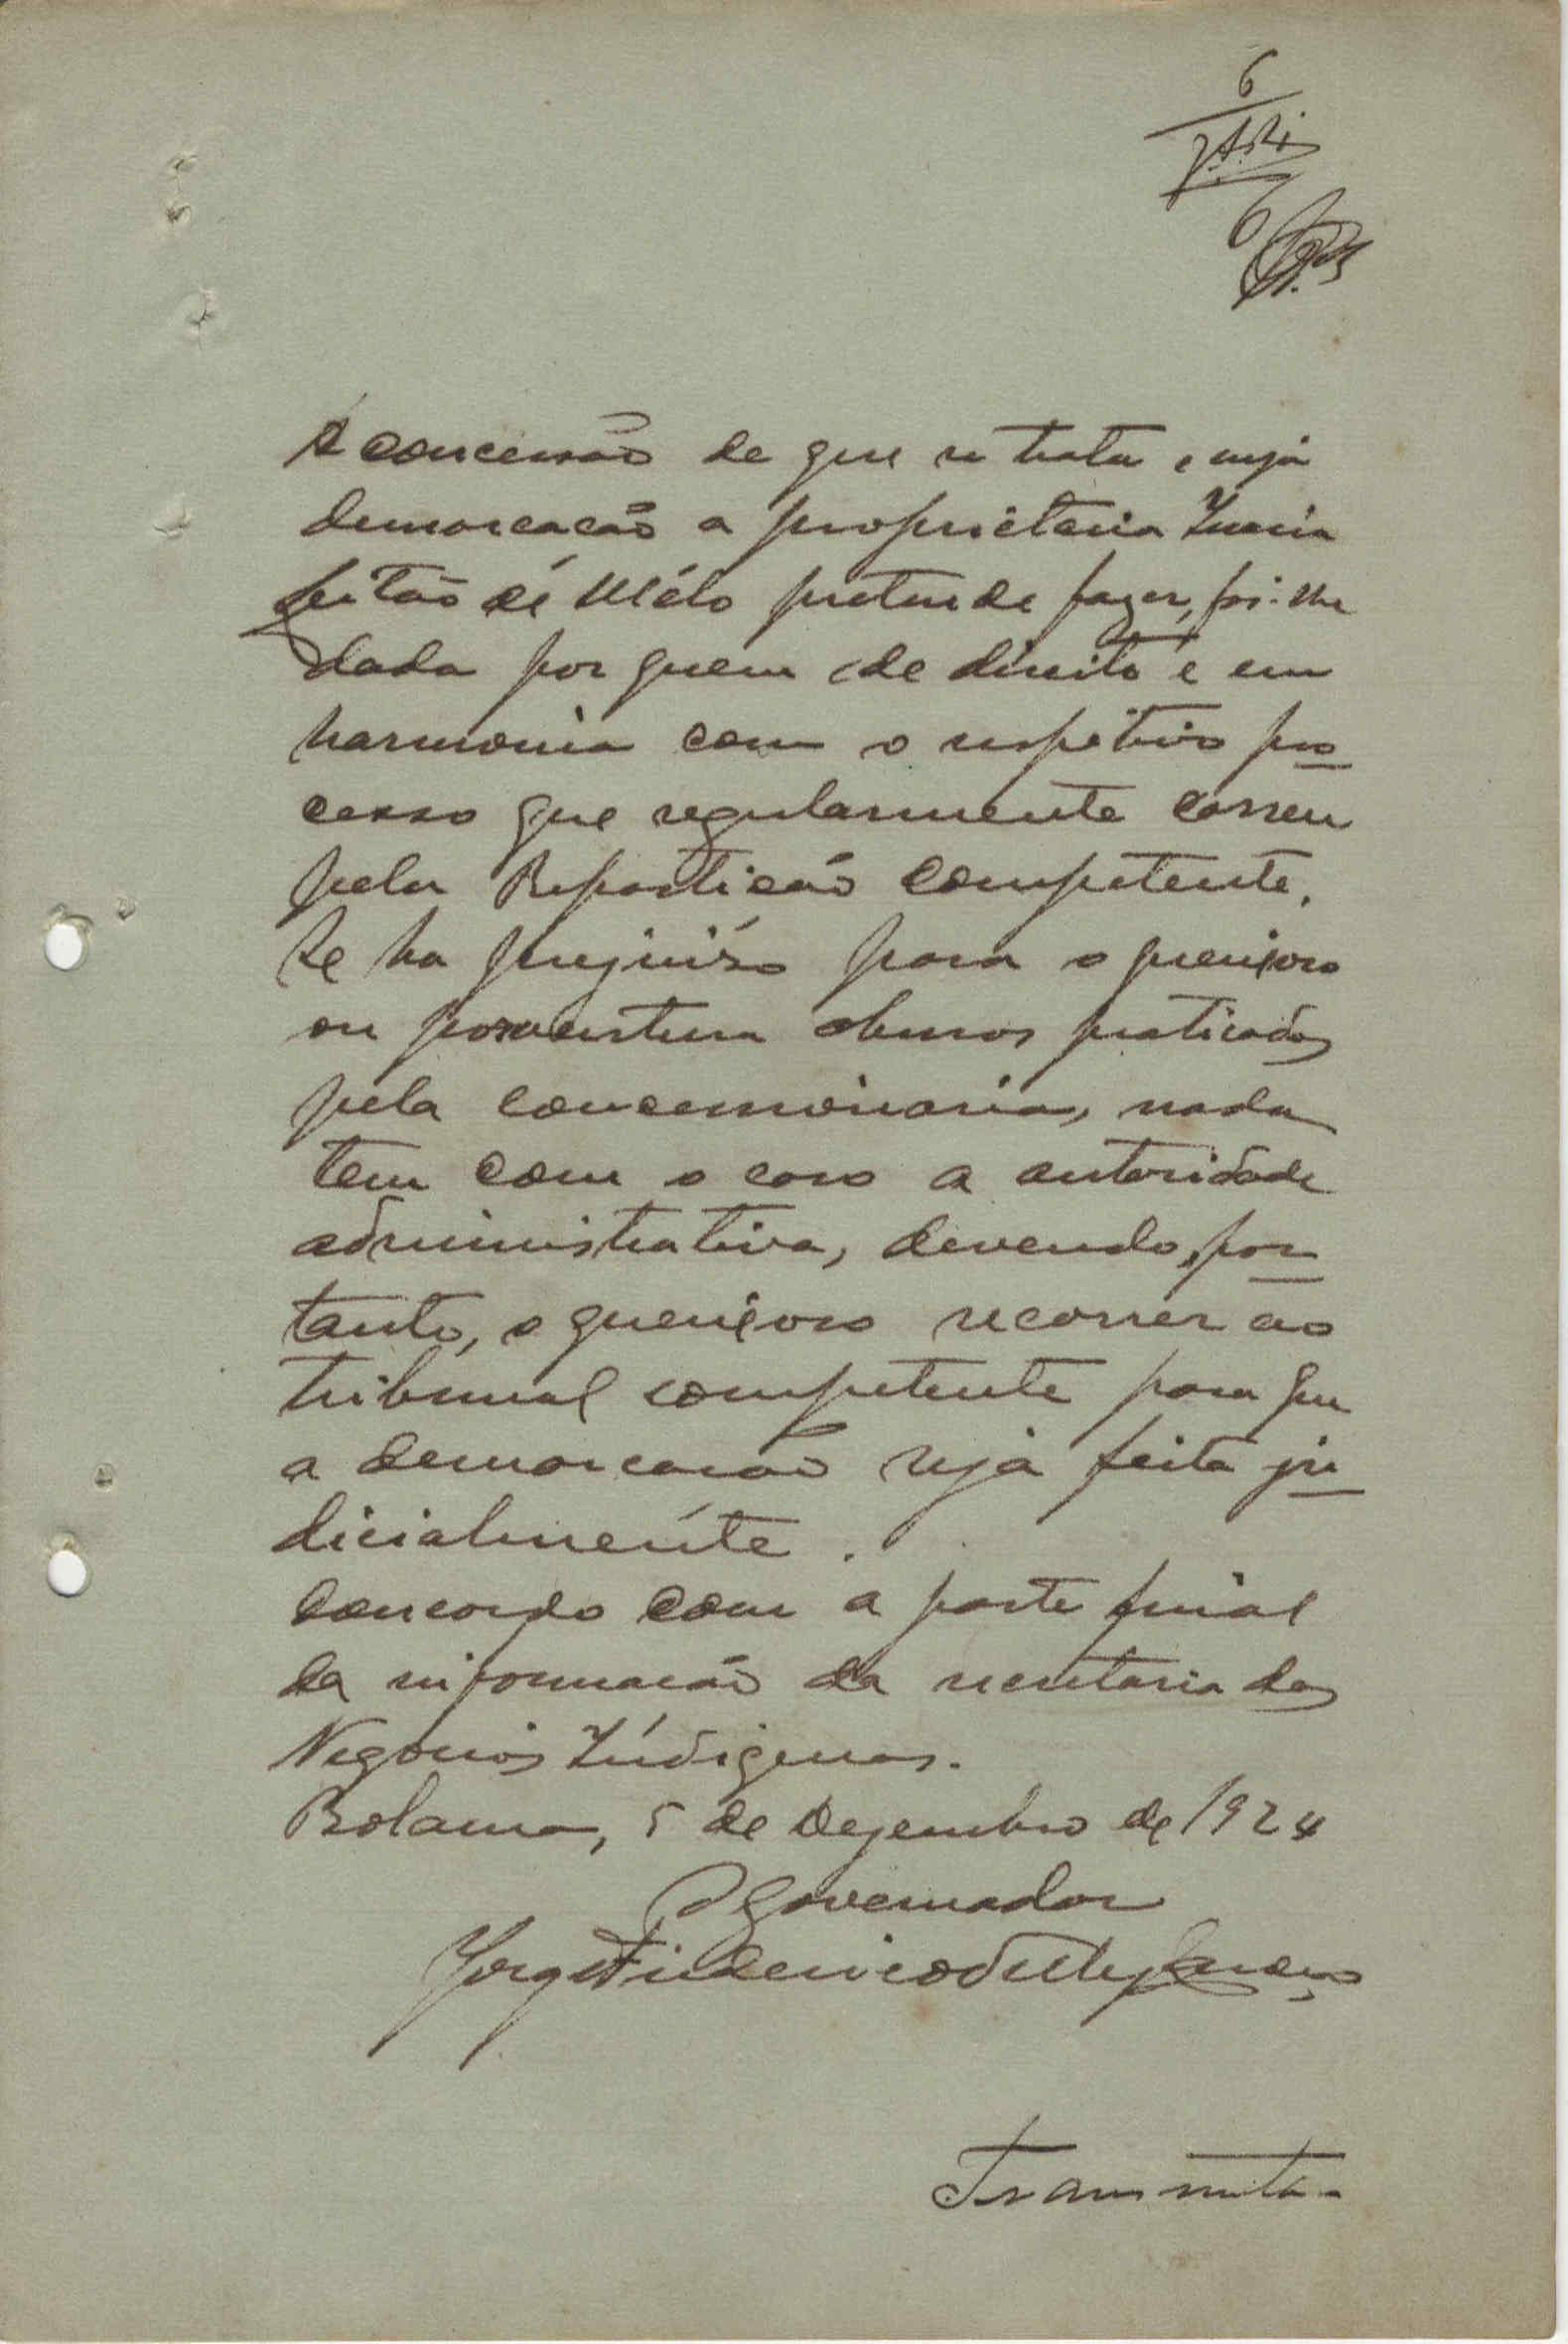 6
6
A concessão de que se trata, cuja
demarcação a proprietaria Inacia
Leitão de Mélo pretende fazer, foi-lhe
dada por quem de direito e em
harmonia com o respétivo pro
cesso que regularmente correu
pela Repartição Competente.
Se ha prejuizo para o queixoso
ou porventura abusos praticados
pela concessionaria, nada
tem com o caso a autoridade
administrativa, devendo, por
tanto, o queixoso recorrer ao
tribunal competente para que
a demarcação seja feita ju
dicialmente.
Concordo com a parte final
da informação da secretaria dos
Negocios Indigenas.
Bolama, 5 de Dezembro de 1924
O Governador
Jorge Frederico Velez Caroço
Transmita-